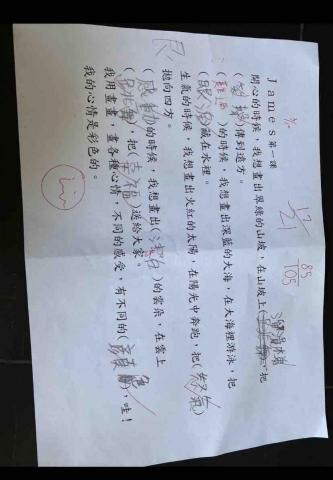 James 第一課
開心的時候，我想畫出翠綠的山坡，在山坡上( )，把
( )傳到遠方。
( )的時候，我想畫出深藍的大海，在大海裡游泳，把
( )藏在水裡。
生氣的時候，我想畫出火紅的太陽，在陽光中奔跑，把(怒氣)
拋向四方。
(感動)的時候，我想畫出(潔白)的雲朵，在雲上
(跳舞)，把(幸福)送給大家。
我用畫畫，畫各種心情，不同的感受，有不同的( )，哇！
我的心情是彩色的。
17
21
85
105
Lin